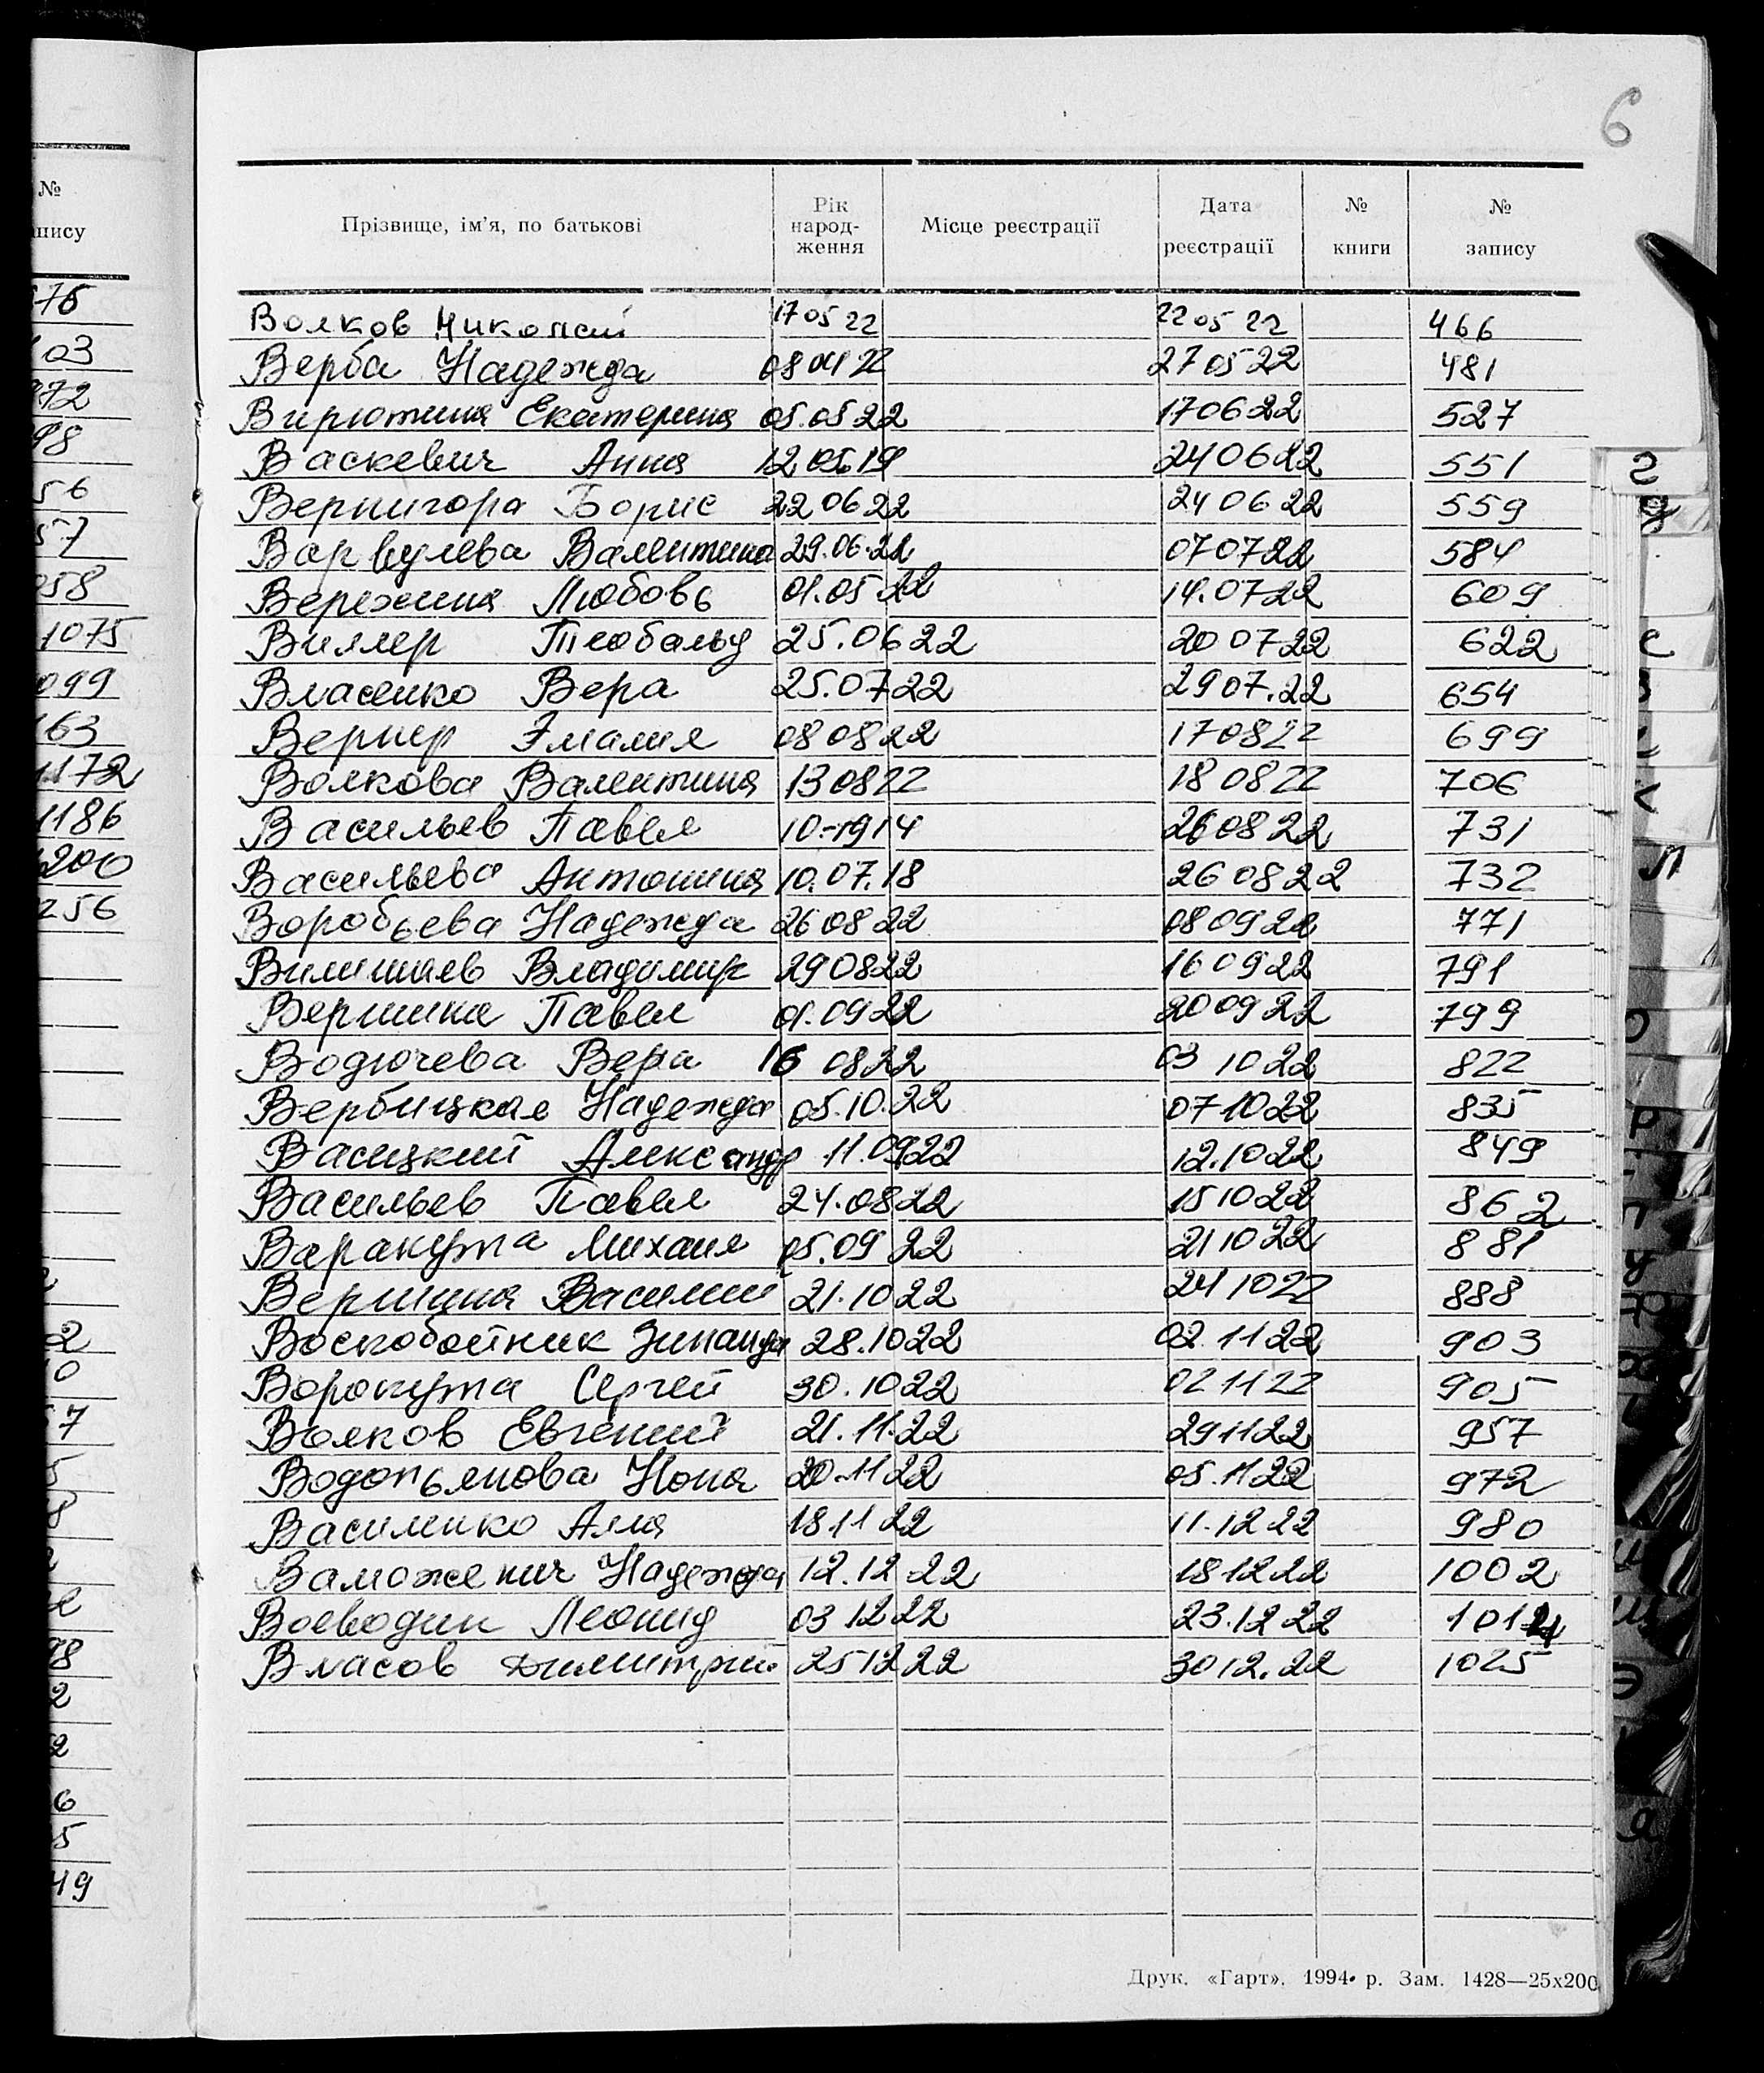 6
Прізвище, ім'я, по батькові Рік народження Місце реєстрації Дата реєстрації № книги № запису
Волков Николай 17 05 22 22 05 22 466
Верба Надежда 08 04 22 27 05 22 481
Вирютина Екатерина 05.05 22 17 06 22 527
Васкевич Анна 12.05.19 24 06 22 551
Вернигора Борис 22 06 22 24 06 22 559
Варвулева Валентина 29.06.22 07 07 22 584
Вережина Любовь 01.05 22 14.07 22 609
Виллер Теобальд 25.06 22 20 07 22 622
Власенко Вера 25.07 22 29 07.22 654
Вернер Эмалия 08 08 22 17 08 22 699
Волкова Валентина 13 08 22 18 08 22 706
Васильев Павел 10.-1914 26 08 22 731
Васильева Антонина 10.07.18 26 08 22 732
Воробьева Надежда 26 08 22 08 09 22 771
Вилишаев Владимир 29 08 22 16 09 22 791
Вершина Павел 01.09 22 20 09 22 799
Водючева Вера 16 08 22 03 10 22 822
Вербицкая Надежда 05.10.22 07 10 22 835
Васицкий Александр 11.09 22 12.10 22 849
Васильев Павел 24.08 22 15 10 22 862
Варакута Михаил 05.09 22 21 10 22 881
Вершина Василий 21.10 22 24 10 22 888
Воскобойник Зинаида 28.10 22 02 11 22 903
Воропута Сергей 30.10 22 02 11 22 905
Волков Евгений 21.11.22 29 11 22 957
Водопьянова Нона 20.11 22 05.11 22 972
Василенко Алла 18 11 22 11.12 22 980
Ваможенич Надежда 12.12 22 18 12 22 1002
Воеводин Леонид 03 12 22 23.12 22 1014
Власов Димитрий 25 12 22 30 12.22 1025
Друк. «Гарт». 1994 р. Зам. 1428—25х200